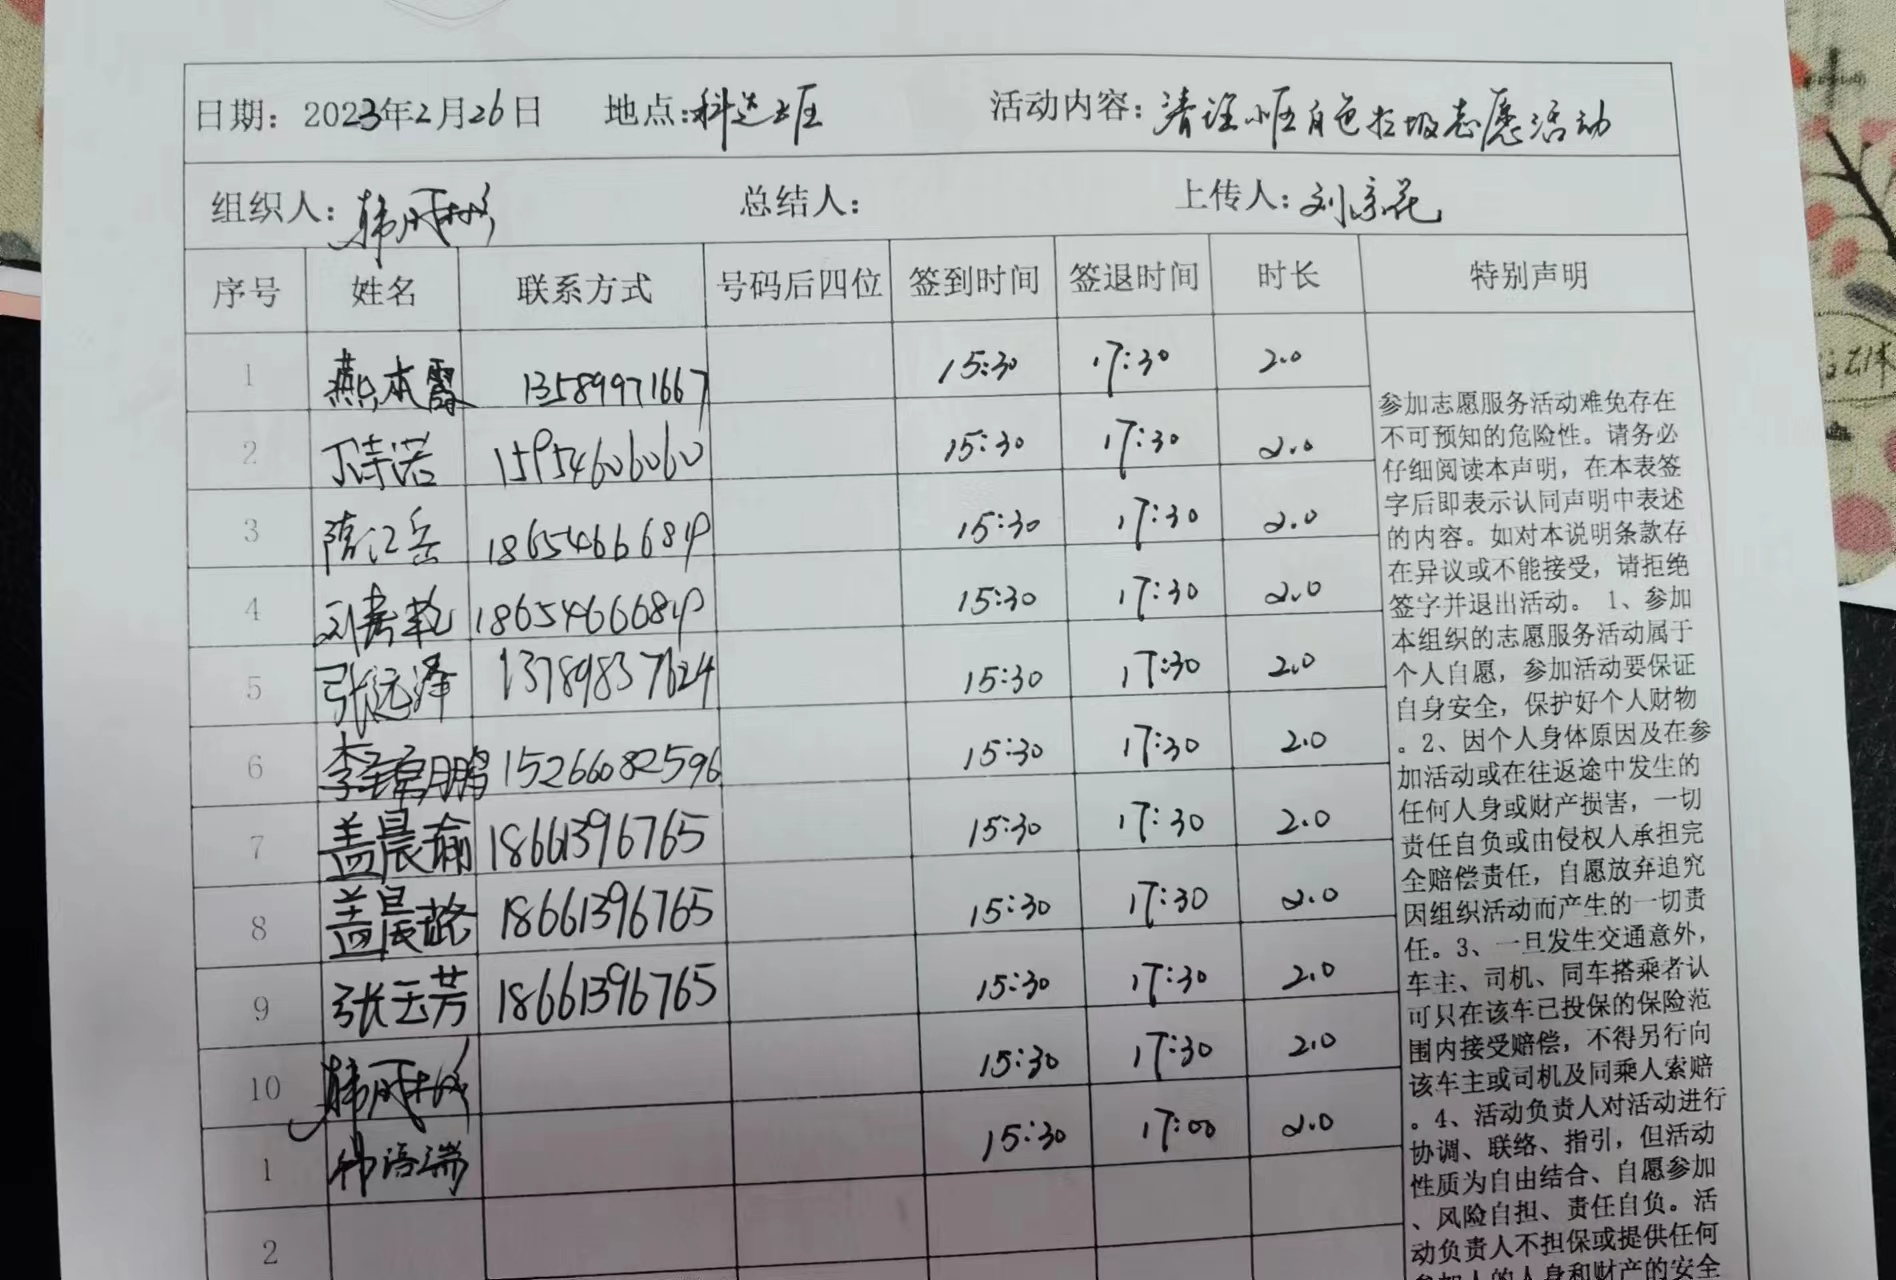 日期：2023年2月26日 地点：科达小区 活动内容：清理小区白色垃圾志愿活动
组织人： 总结人： 上传人：刘
序号 姓名 联系方式 号码后四位 签到时间 签退时间 时长 特别声明
1 燕本霞 13589971667 15:30 17:30 2.0
2 丁诗诺 15954606060 15:30 17:30 2.0
3 隋江岳 18654666819 15:30 17:30 2.0
4 刘 乾 18654666819 15:30 17:30 2.0
5 张远泽 13789837624 15:30 17:30 2.0
6 李 鹏 15266082596 15:30 17:30 2.0
7 盖晨瑜 18661396765 15:30 17:30 2.0
8 盖晨璐 18661396765 15:30 17:30 2.0
9 张玉芳 18661396765 15:30 17:30 2.0
10 韩 15:30 17:30 2.0
1 韩语端 15:30 17:00 2.0
2
参加志愿服务活动难免存在
不可预知的危险性。请务必
仔细阅读本声明，在本表签
字后即表示认同声明中表述
的内容。如对本说明条款存
在异议或不能接受，请拒绝
签字并退出活动。 1、参加
本组织的志愿服务活动属于
个人自愿，参加活动要保证
自身安全，保护好个人财物
。2、因个人身体原因及在参
加活动或在往返途中发生的
任何人身或财产损害，一切
责任自负或由侵权人承担完
全赔偿责任，自愿放弃追究
因组织活动而产生的一切责
任。3、一旦发生交通意外，
车主、司机、同车搭乘者认
可只在该车已投保的保险范
围内接受赔偿，不得另行向
该车主或司机及同乘人索赔
。4、活动负责人对活动进行
协调、联络、指引，但活动
性质为自由结合、自愿参加
、风险自担、责任自负。活
动负责人不担保或提供任何
参加人的人身和财产的安全